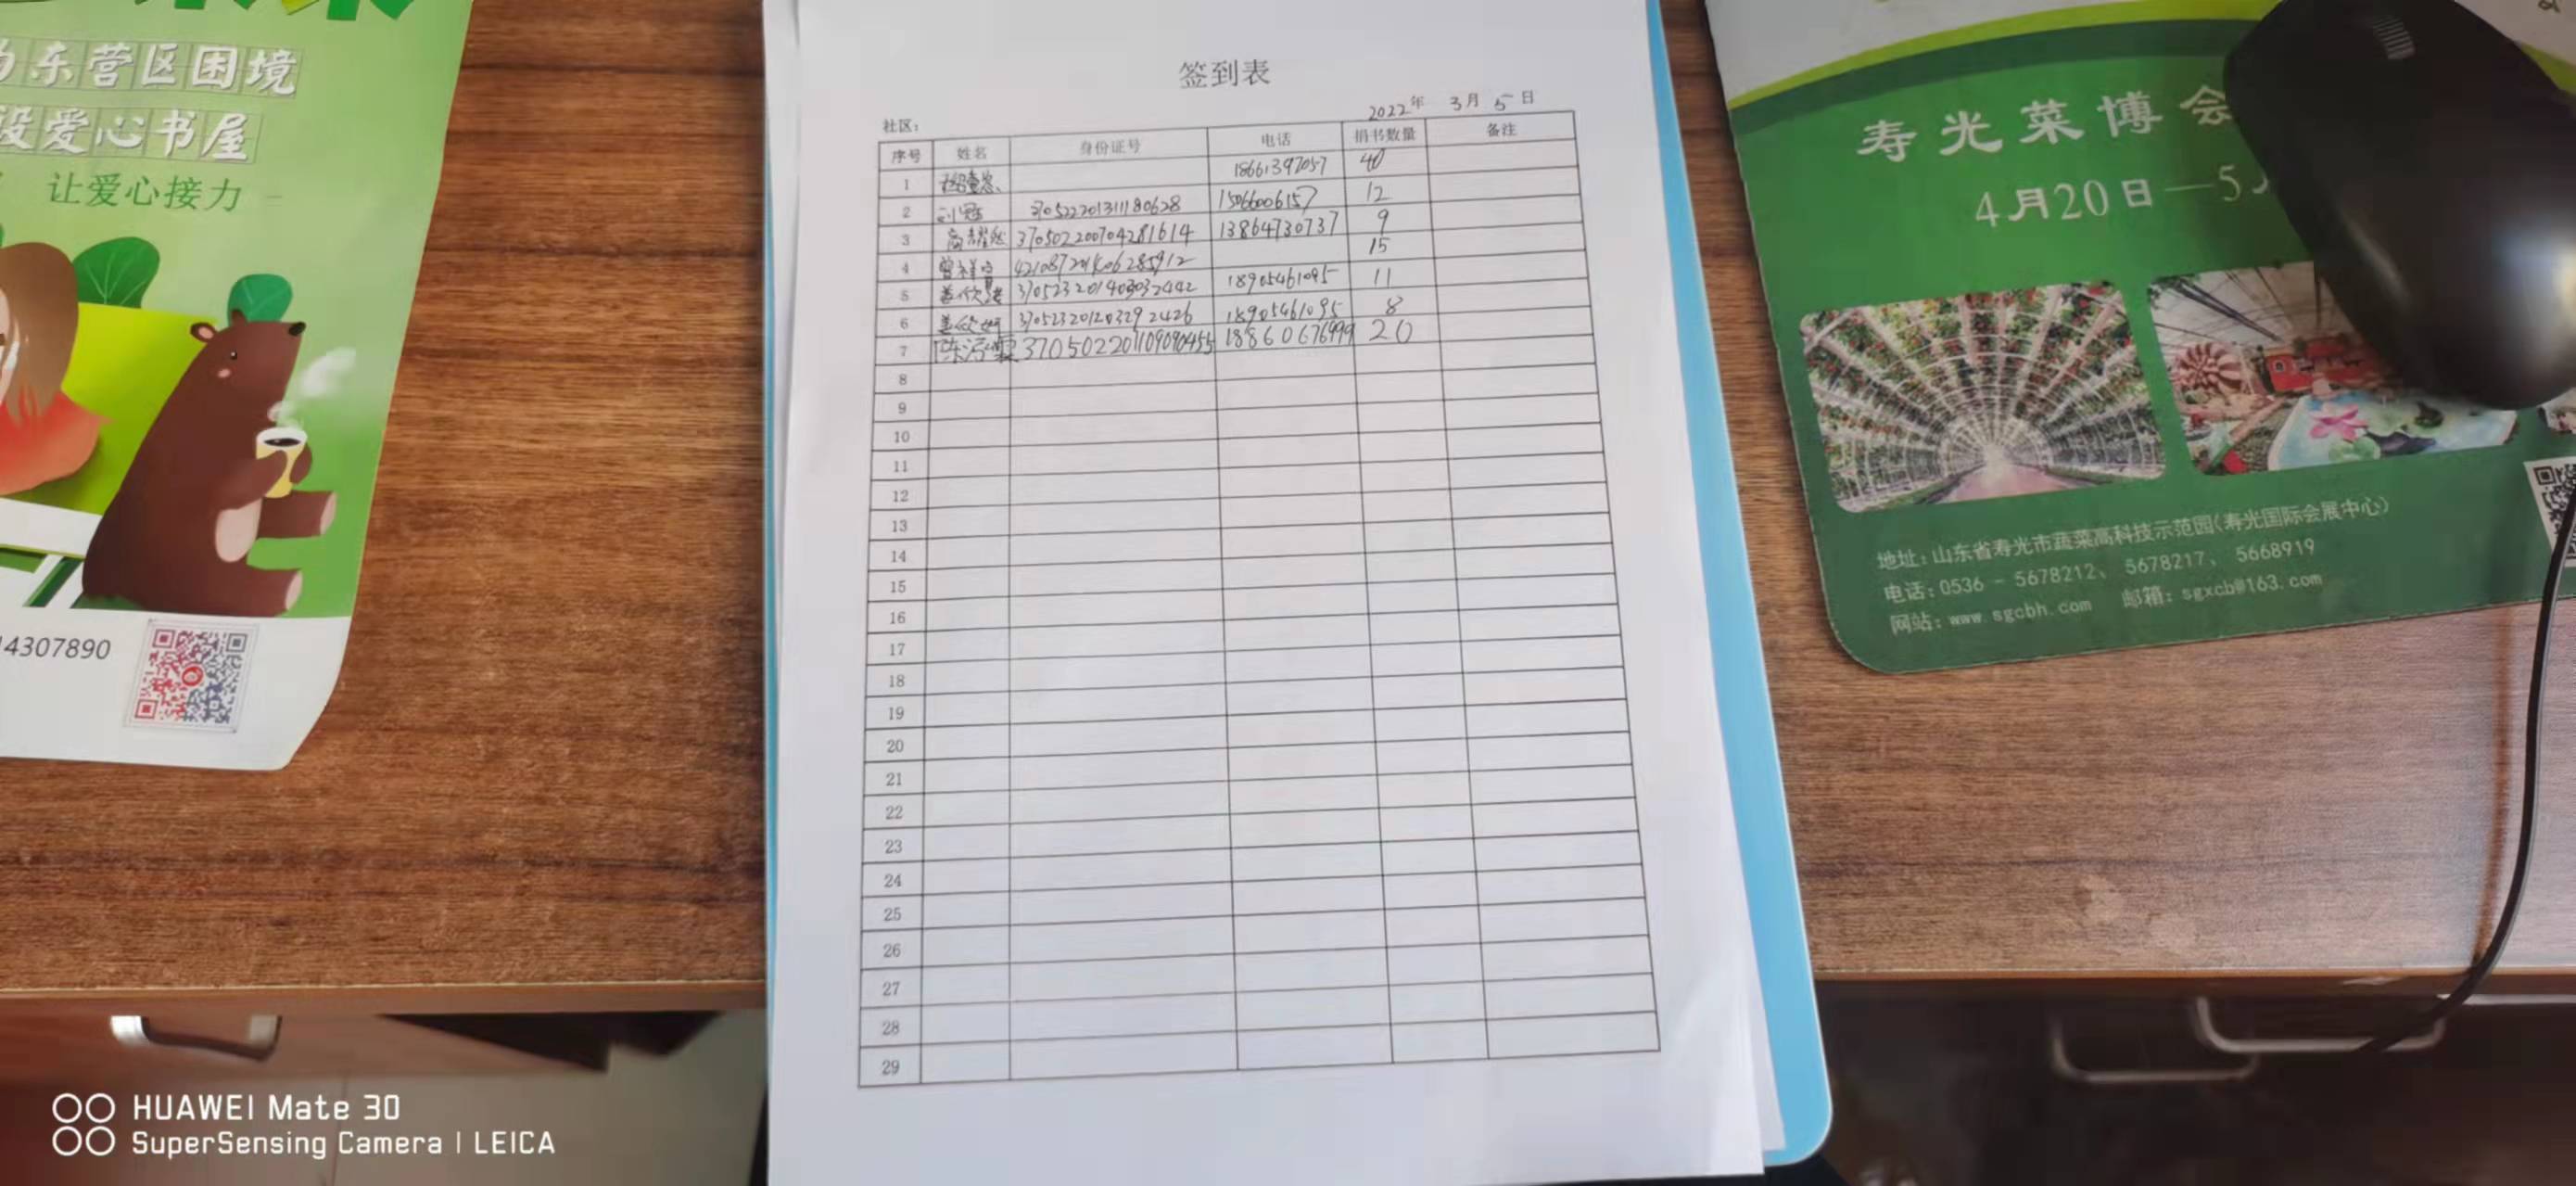 东营区困境
设爱心书屋
让爱心接力
4307890
签到表
社区：
2022年 3月 5日
序号 姓名 身份证号 电话 捐书数量 备注
1 18661397057 40
2 370522201311180628 15066006157 12
3 370502200704281614 13864730737 9
4 15
5 370523201403032442 18905461095 11
6 370523201203292426 18905461095 8
7 370502201109090455 18860676999 20
8
9
10
11
12
13
14
15
16
17
18
19
20
21
22
23
24
25
26
27
28
29
寿光菜博会
4月20日—5
地址：山东省寿光市蔬菜高科技示范园（寿光国际会展中心）
电话：0536 - 5678212、 5678217、 5668919
网站：www.sgcbh.com 邮箱：sgxcb@163.com
HUAWEI Mate 30
SuperSensing Camera | LEICA